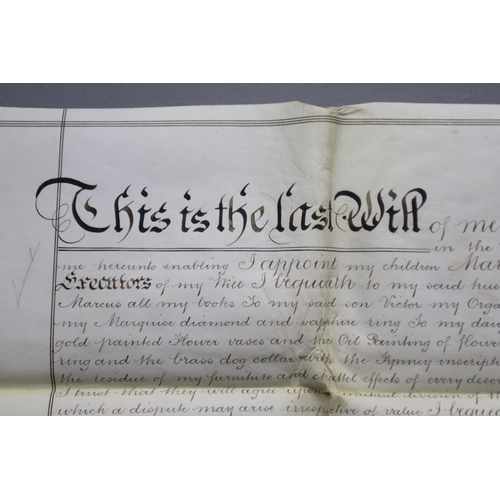 This is the last Will of me
in the
me hereunto enabling I appoint my children Mar
Executors of my Will I bequeath to my said hus
Marcus all my books To my said son Victor my Orga
my Marquise diamond and sapphire ring To my da
gold painted Flower vases and the Oil Painting of flower
ring and the brass dog collar with the inscripti
the residue of my furniture and chattel effects of every desc
I trust that they will agree upon a mutual division of th
which a dispute may arise irrespective of value I bequea